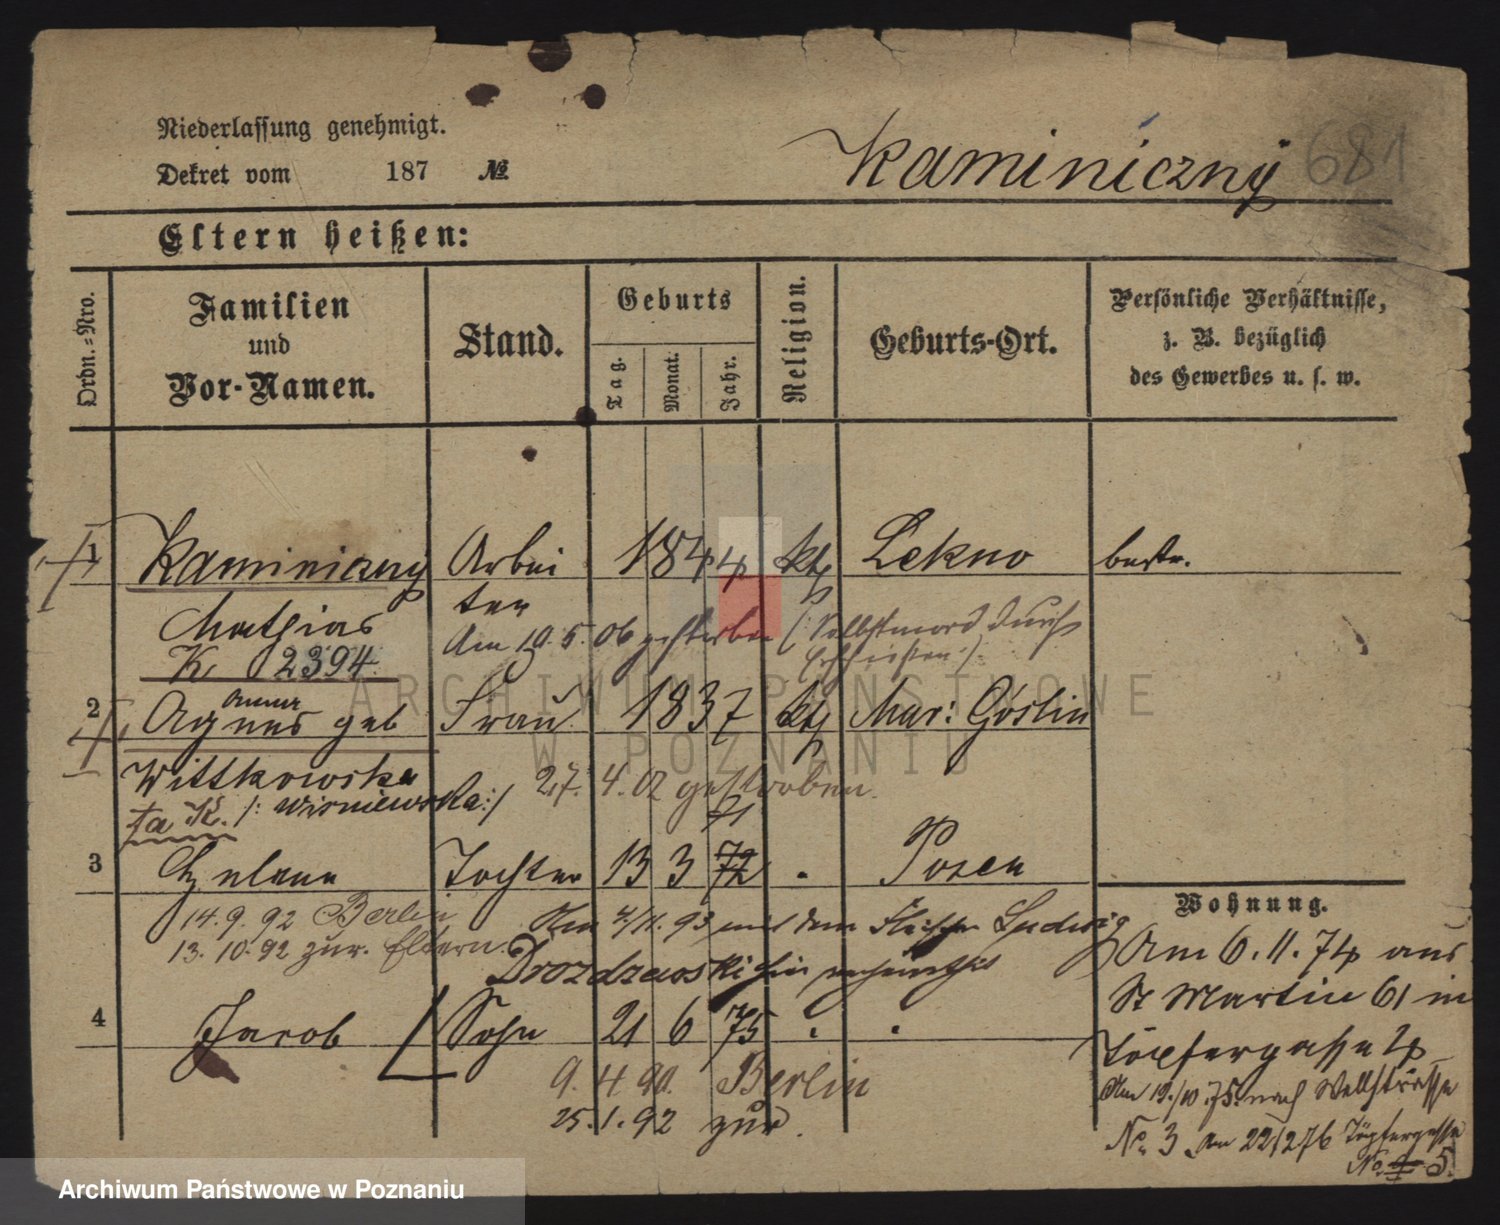 Niederlassung genehmigt.
Dekret vom 187 №
Kaminiczny 681
Eltern heißen:
Ordn.-Nro.
Familien
und
Vor-Namen.
Stand.
Geburts
Tag.
Monat.
Jahr.
Religion.
Geburts-Ort.
Persönliche Verhältnisse,
z. B. bezüglich
des Gewerbes u. s. w.
1 Kaminiczny Arbei 1844 kth Lekno bestr.
Mathias ter
Am 19.5.06 gestorben (Selbstmord durch
K 2394
2 Agnes geb Frau 1837 kth Mur: Goslin
Anna
Wittkowska
27.4.02 gestorben.
/: Wisniewska :/
71
3 Tochter 13 3 72 " Posen
14.9.92 Berlin
13.10.92 zur. Eltern.
Am 4/11.93 mit dem Fleischer Ludwig
Drozdzewski hier verheirathet
4 Jacob Sohn 21 6 75 " "
9.4.90. Berlin
25.1.92 zür.
Wohnung.
Am 6.11.74 aus
St Martin 61 in
Töpfergasse 4
Am 19./10.75. nach Wallstrasse
No. 3. Am 22/2 76 Töpfergasse
No. 5.
ARCHIWUM PAŃSTWOWE
W POZNANIU
Archiwum Państwowe w Poznaniu